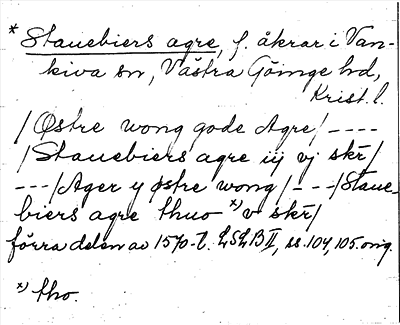 * Stauebiers agre, f. åkrar i Van-
kiva sn, Västra Göinge hd,
Krist. l.
/Østre wong gode Agre/ ----
/Stauebiers agre iij vj skr/
---/Ager y østre wong/---/Staue-
biers agre thuo x) v skr/
förra delen av 1570-t. LSLB II, ss. 104, 105. orig.
x) tho.